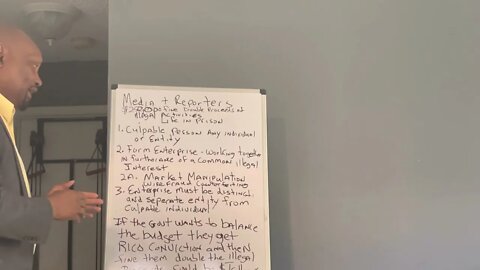 Media + Reporters
fine Double Proceeds of
illegal Activities
Life in Prison
1. Culpable Person Any individual
or Entity
2. Form Enterprise - Working together
in furtherance of a Common illegal
Interest
2A. Market Manipulation
wirefraud
3. Enterprise must be distinct
and seperate entity from
Culpable individual
If the Govt wants to balance
the budget they get
RICO Conviction and then
fine them double the illegal